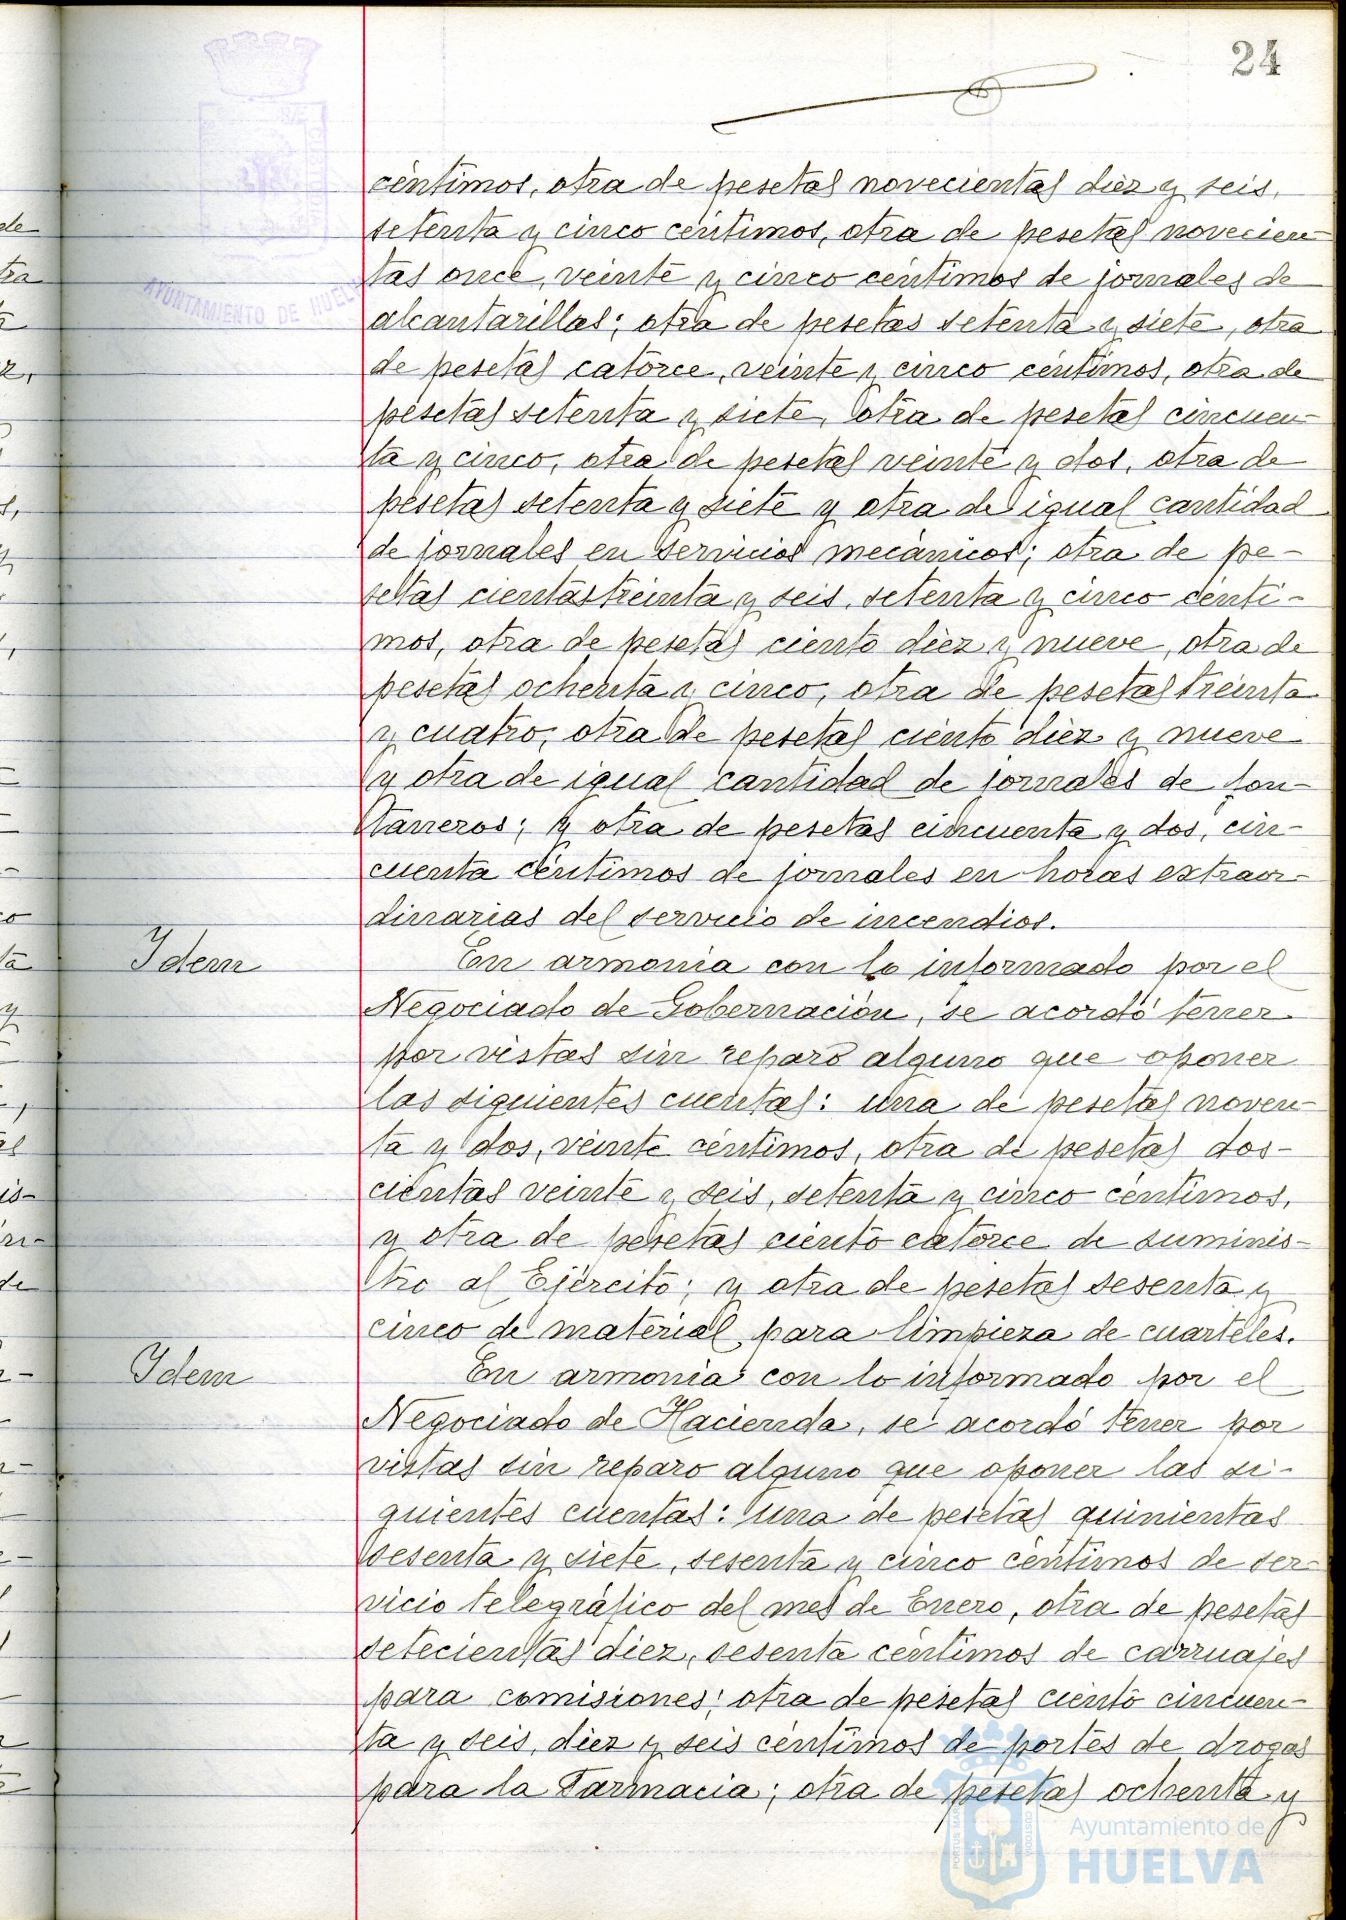 24
céntimos, otra de pesetas novecientas diez y seis,
setenta y cinco céntimos, otra de pesetas novecien-
tas once, veinte y cinco céntimos de jornales de
alcantarillas; otra de pesetas setenta y siete, otra
de pesetas catorce, veinte y cinco céntimos, otra de
pesetas setenta y siete, otra de pesetas cincuen-
ta y cinco, otra de pesetas veinte y dos, otra de
pesetas setenta y siete y otra de igual cantidad
de jornales en servicios mecánicos; otra de pe-
setas cientas treinta y seis, setenta y cinco cénti-
mos, otra de pesetas ciento diez y nueve, otra de
pesetas ochenta y cinco, otra de pesetas treinta
y cuatro, otra de pesetas ciento diez y nueve
y otra de igual cantidad de jornales de fon-
taneros; y otra de pesetas cincuenta y dos, cin-
cuenta céntimos de jornales en horas extraor-
dinarias del servicio de incendios.
Idem
En armonía con lo informado por el
Negociado de Gobernación, se acordó tener
por vistas sin reparo alguno que oponer
las siguientes cuentas: una de pesetas noven-
ta y dos, veinte céntimos, otra de pesetas dos-
cientas veinte y seis, setenta y cinco céntimos,
y otra de pesetas ciento catorce de suminis-
tro al Ejército; y otra de pesetas sesenta y
cinco de material para limpieza de cuarteles.
Idem
En armonía con lo informado por el
Negociado de Hacienda, se acordó tener por
vistas sin reparo alguno que oponer las si-
guientes cuentas: una de pesetas quinientas
sesenta y siete, sesenta y cinco céntimos de ser-
vicio telegráfico del mes de Enero, otra de pesetas
setecientas diez, sesenta céntimos de carruajes
para comisiones; otra de pesetas ciento cincuen-
ta y seis, diez y seis céntimos de portes de drogas
para la Farmacia; otra de pesetas ochenta y
AYUNTAMIENTO DE HUELVA
Ayuntamiento de
HUELVA